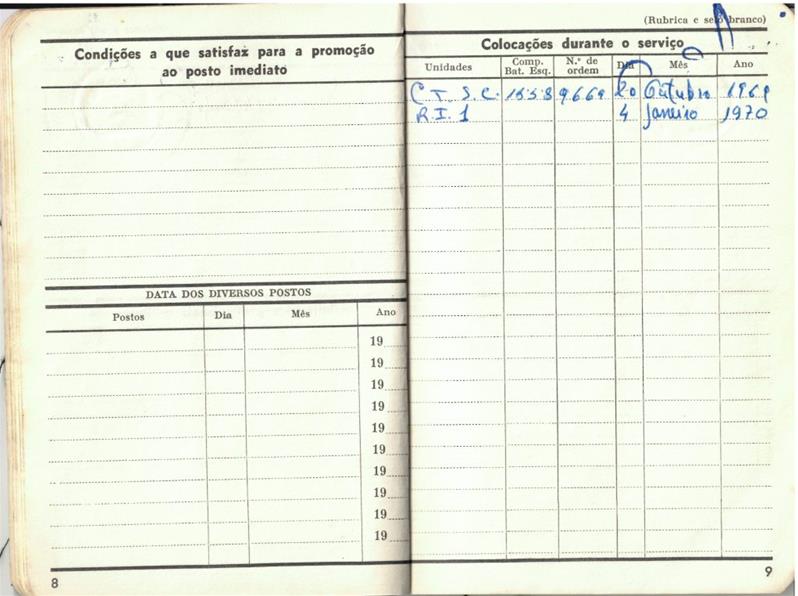 Condições a que satisfaz para a promoção
ao posto imediato
DATA DOS DIVERSOS POSTOS
Postos Dia Mês Ano
19
19
19
19
19
19
19
19
19
19
8
(Rubrica e selo branco)
Colocações durante o serviço
Unidades Comp. Bat. Esq. N.º de ordem Dia Mês Ano
C T. S. C. 1558 9669 20 Outubro 1969
R. I. 1 4 Janeiro 1970
9